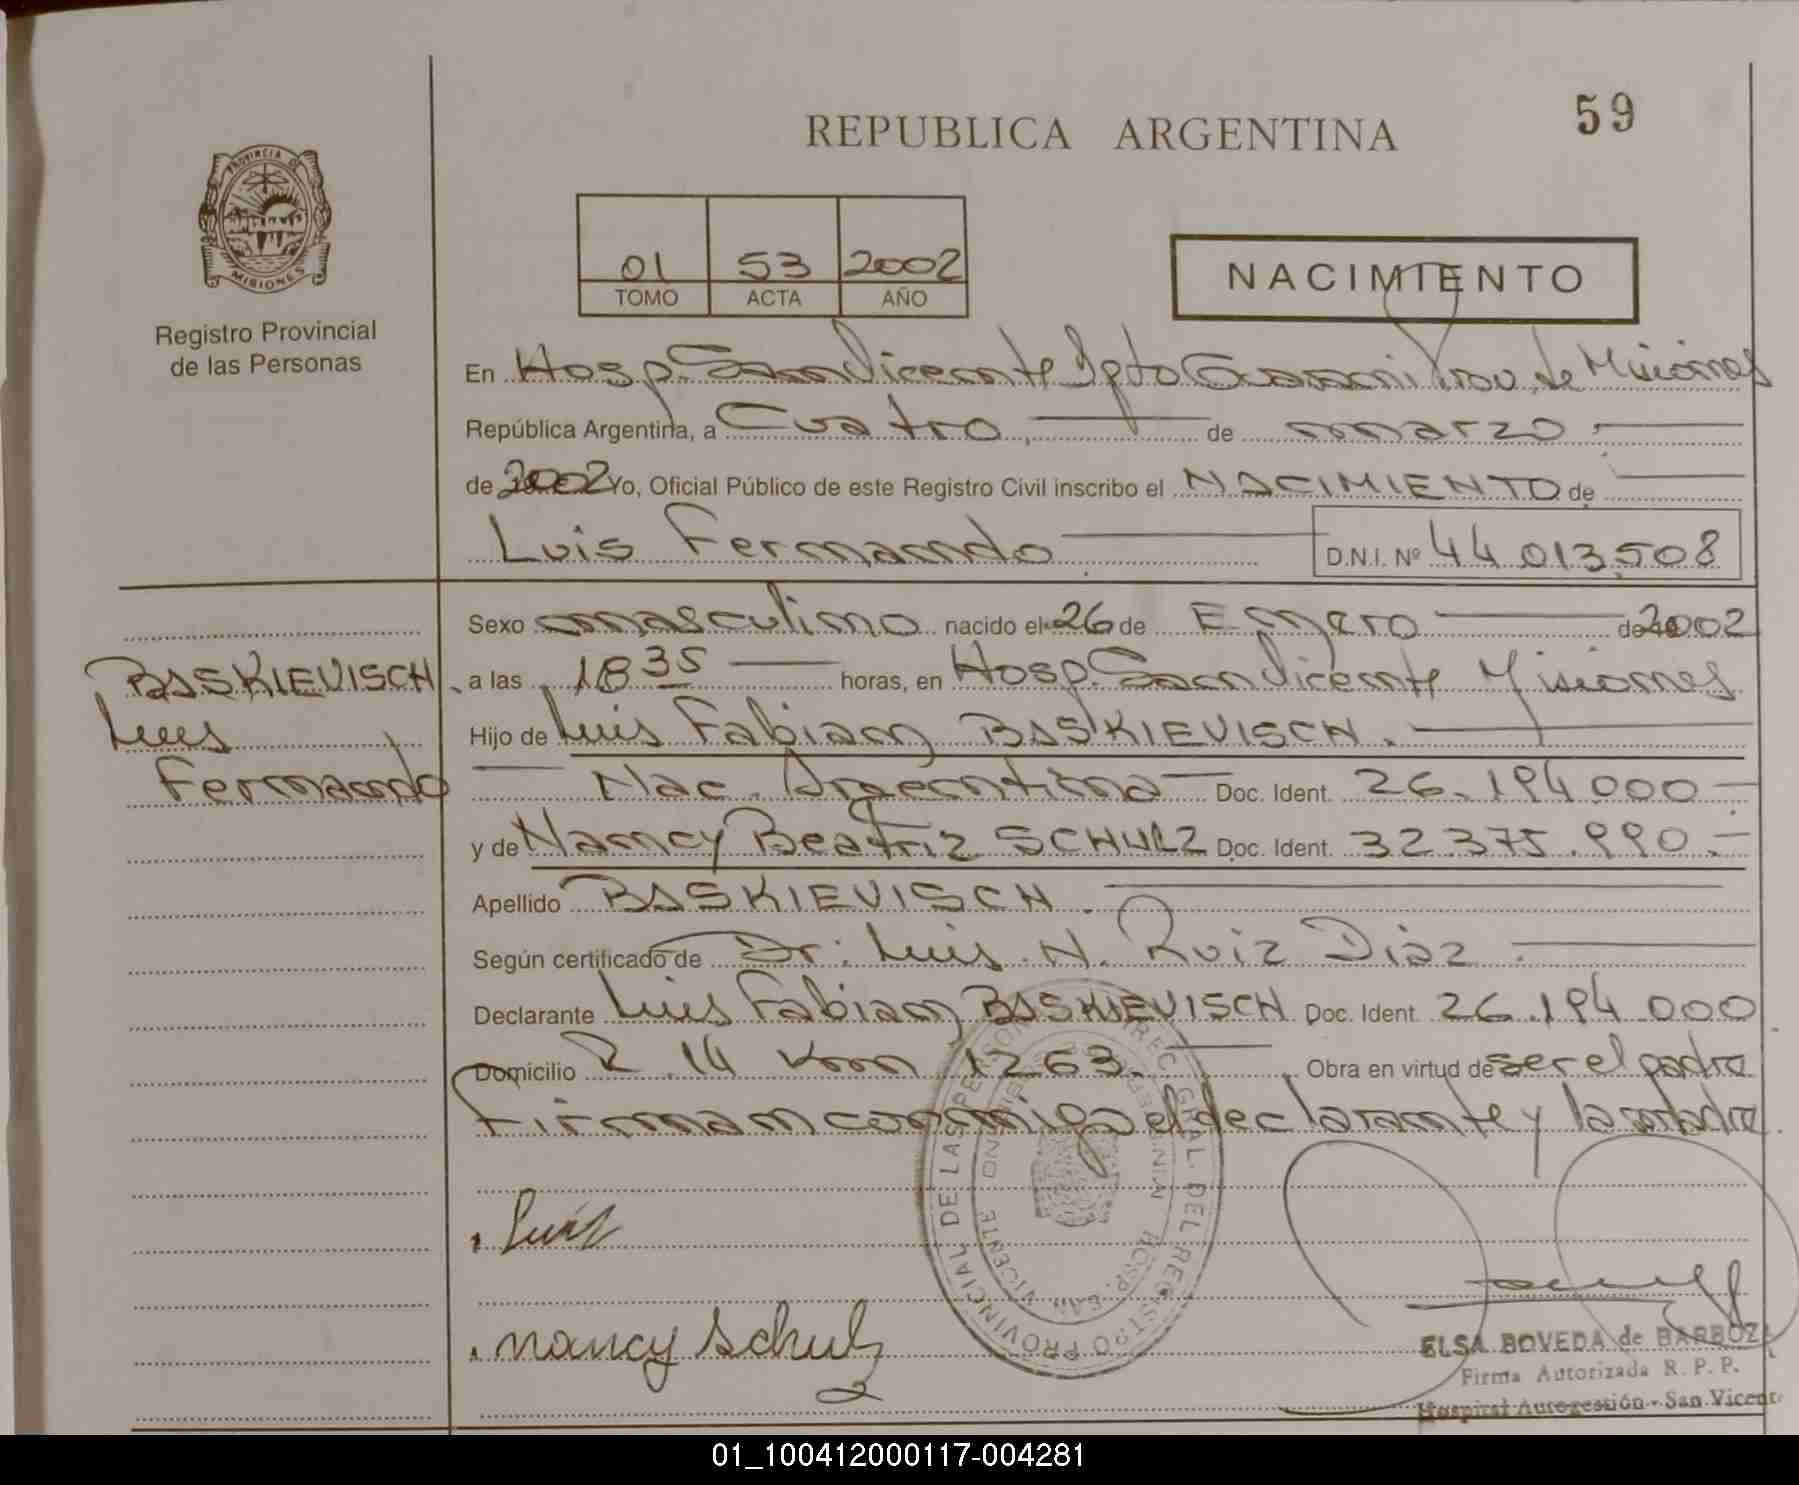 59
REPUBLICA ARGENTINA
PROVINCIA DE
MISIONES
Registro Provincial
de las Personas
01 53 2002
TOMO ACTA AÑO
NACIMIENTO
En Hosp. San Vicente Dpto Guarani Prov. de Misiones
República Argentina, a Cuatro de marzo
de 2002 Yo, Oficial Público de este Registro Civil inscribo el NACIMIENTO de
Luis Fernando D.N.I. Nº 44.013.508
Sexo masculino nacido el 26 de Enero de 2002
BASKIEVISCH
Luis
Fernando
a las 18 35 horas, en Hosp. San Vicente Misiones
Hijo de Luis Fabian BASKIEVISCH.
Nac. Argentina Doc. Ident. 26.194.000
y de Nancy Beatriz SCHULZ Doc. Ident. 32.375.990.
Apellido BASKIEVISCH.
Según certificado de Dr. Luis N. Ruiz Diaz.
Declarante Luis Fabian BASKIEVISCH Doc. Ident. 26.194.000
Domicilio R. 14 Km 1263. Obra en virtud de ser el padre
Firman conmigo el declarante y la madre.
Luis
nancy Schulz
DIREC. GRAL. DEL REGISTRO PROVINCIAL DE LAS PERSONAS
HOSP. SAN VICENTE
ELSA BOVEDA de BARBOZA
Firma Autorizada R. P. P.
Hospital Autogestión - San Vicente
01_100412000117-004281